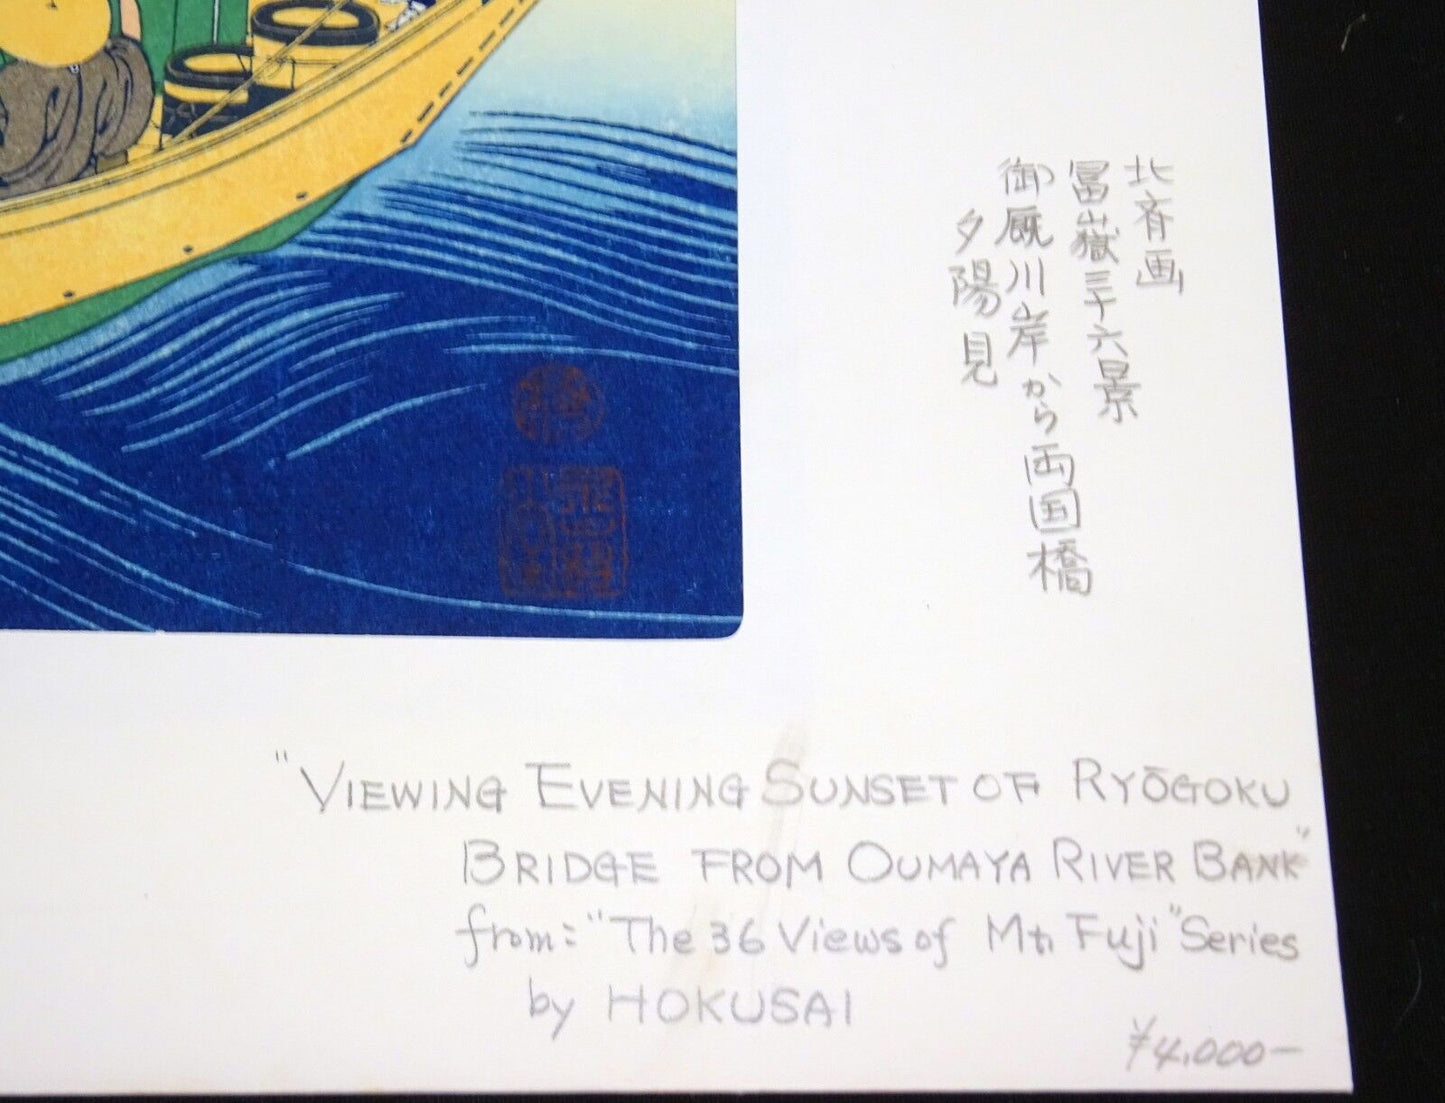 北斉画
冨嶽三十六景
御厩川岸から両国橋
夕陽見
"VIEWING EVENING SUNSET OF RYŌGOKU
BRIDGE FROM OUMAYA RIVER BANK"
from: "The 36 Views of Mt. Fuji" Series
by HOKUSAI
¥4,000-